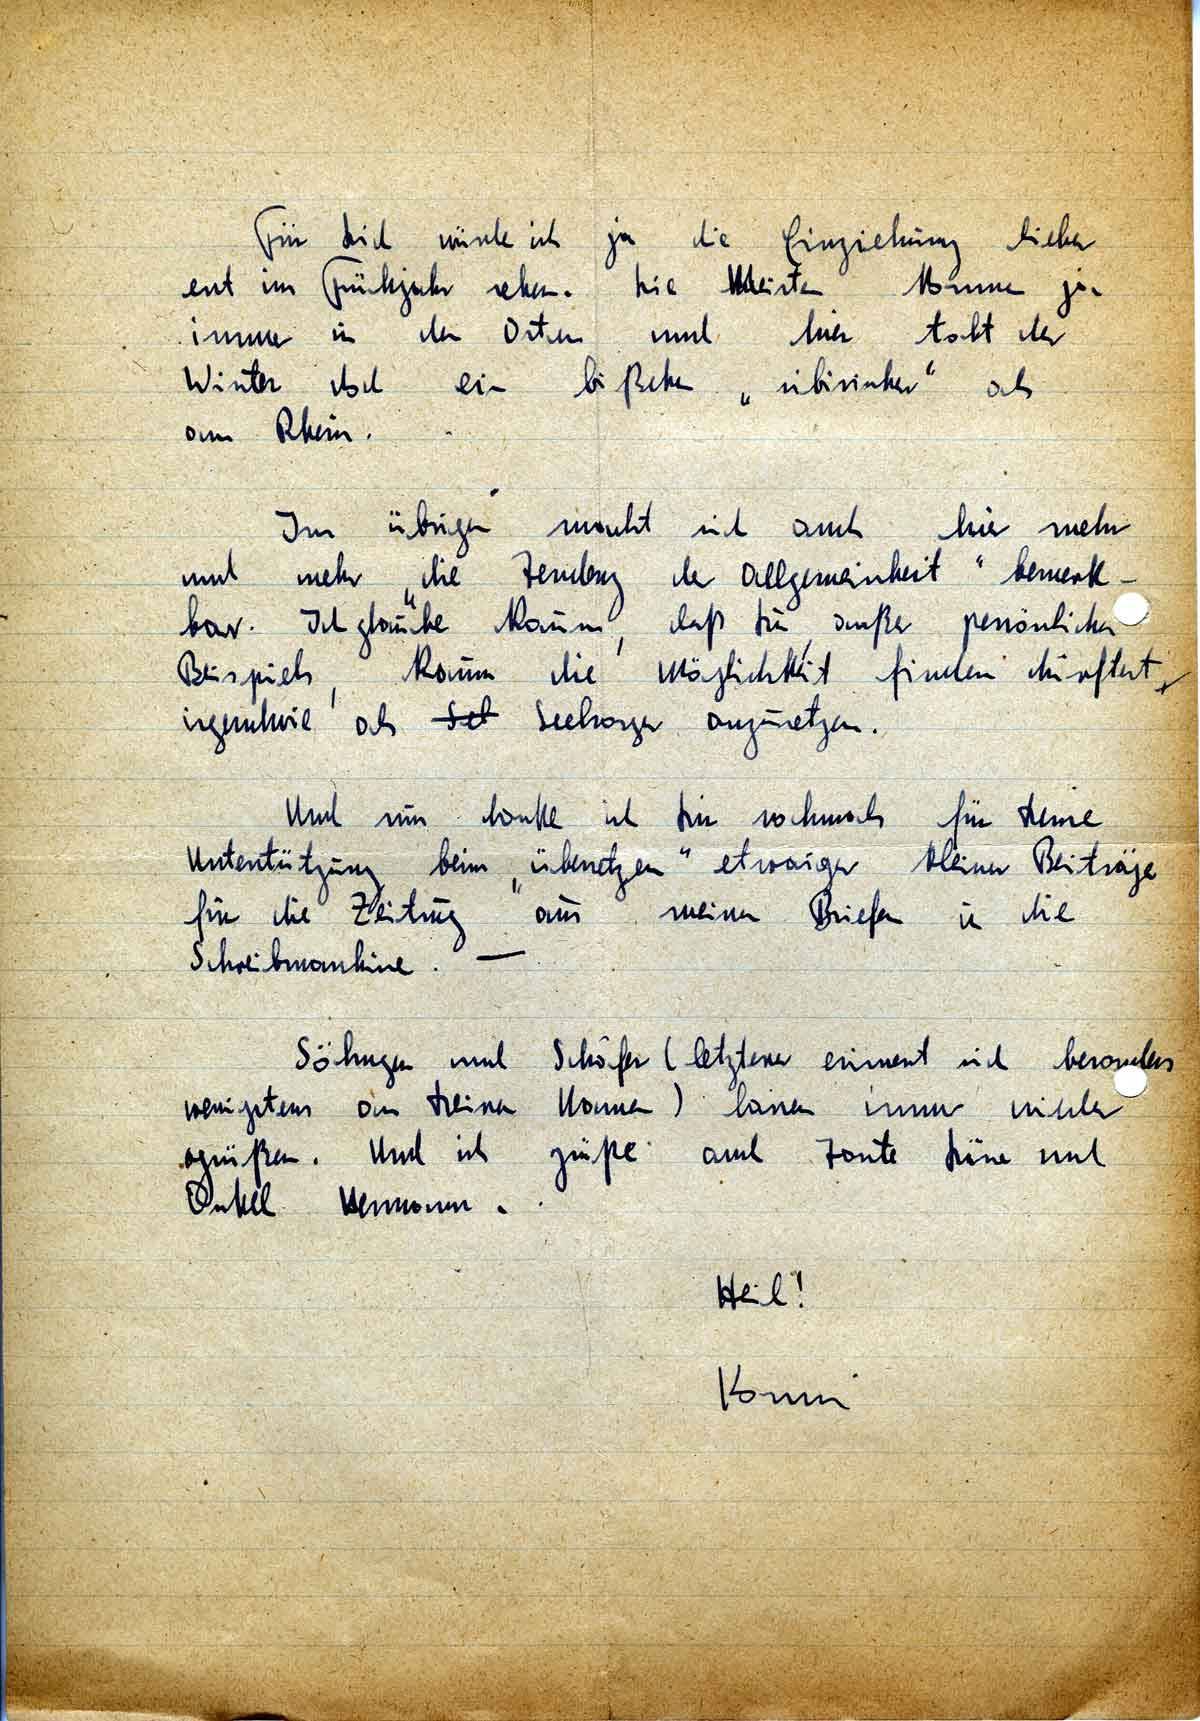 Für Dich würde ich ja die Einziehung lieber
erst im Frühjahr sehen. Die Meisten kommen ja
immer in den Osten und hier tobt der
Winter doch ein bißchen „sibirischer“ als
am Rhein.
Im übrigen macht sich auch hier mehr
und mehr „die Tendenz der Allgemeinheit“ bemerk-
bar. Ich glaube kaum, daß Du, außer persönlichen
Beispiels, kaum die Möglichkeit finden dürftest,
irgendwie als Seelsorger anzusetzen.
Und nun danke ich Dir nochmals für Deine
Unterstützung beim „übersetzen“ etwaiger kleiner Beiträge
für die Zeitung aus meinen Briefen in die
Schreibmaschine. —
Söhngen und Schäfer (letzterer erinnert sich besonders
wenigstens an Deinen Namen) lassen immer wieder
grüßen. Und ich grüße auch Tante und
Onkel Hermann.
Heil!
Konni